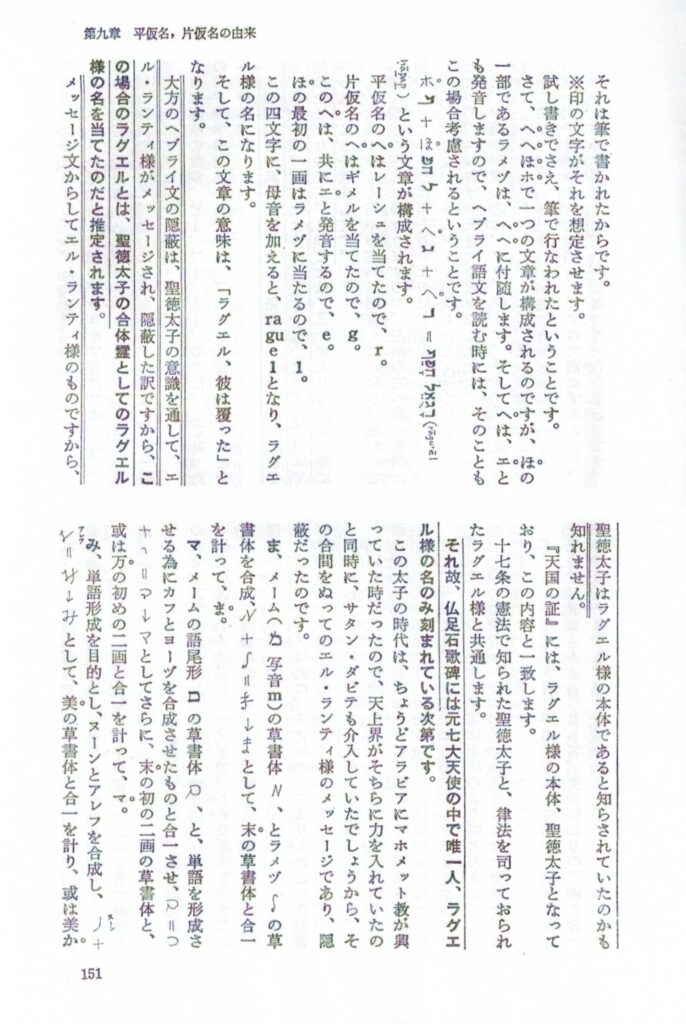 第九章　平仮名，片仮名の由来
それは筆で書かれたからです。
※印の文字がそれを想定させます。
試し書きでさえ、筆で行なわれたということです。
さて、へへほホで一つの文章が構成されるのですが、ほの
一部であるラメヅは、へへに付随します。そしてへは、エと
も発音しますので、ヘブライ語文を読む時には、そのことも
この場合考慮されるということです。
という文章が構成されます。
平仮名のへはレーシュを当てたので、r
片仮名のヘはギメルを当てたので、g。
このへは、共にエと発音するので、e。
ほの最初の一画はラメヅに当たるので、l。
この四文字に母音を加えると、raguelとなり、ラグエ
ル様の名になります。
そして、この文章の意味は、「ラグエル、彼は覆った」と
なります。
大方のヘブライ文の隠蔽は、聖徳太子の意識を通して、エ
ル・ランティ様がメッセージされ、隠蔽した訳ですから、こ
の場合のラグエルとは、聖徳太子の合体霊としてのラグエル
様の名を当てたのだと推定されます。
メッセージ文からしてエル・ランティ様のものですから、
聖徳太子はラグエル様の本体であると知らされていたのかも
知れません。
『天国の証』には、ラグエル様の本体、聖徳太子となって
おり、この内容と一致します。
十七条の憲法で知られた聖徳太子と、律法を司っておられ
たラグエル様と共通します。
それ故、仏足石歌碑には元七大天使の中で唯一人、ラグエ
ル様の名のみ刻まれている次第です。
この太子の時代は、ちょうどアラビアにマホメット教が興
っていた時だったので、天上界がそちらに力を入れていたの
と同時に、サタン・ダビデも介入していたでしょうから、そ
の合間をぬってのエル・ランティ様のメッセージであり、隠
蔽だったのです。
ま、メーム（מ 写音m）の草書体、とラメヅの草
書体を合成、として、末の草書体と合一
を計って、ま。
マ、メームの語尾形 ם の草書体、と、単語を形成さ
せる為にカフとヨーヅを合成させたものと合一させ、
マとしてさらに、末の初の二画の草書体と、
或は万の初めの二画と合一を計って、マ。
み、単語形成を目的とし、ヌーンとアレフを合成し、
みとして、美の草書体と合一を計り、或は美か
151